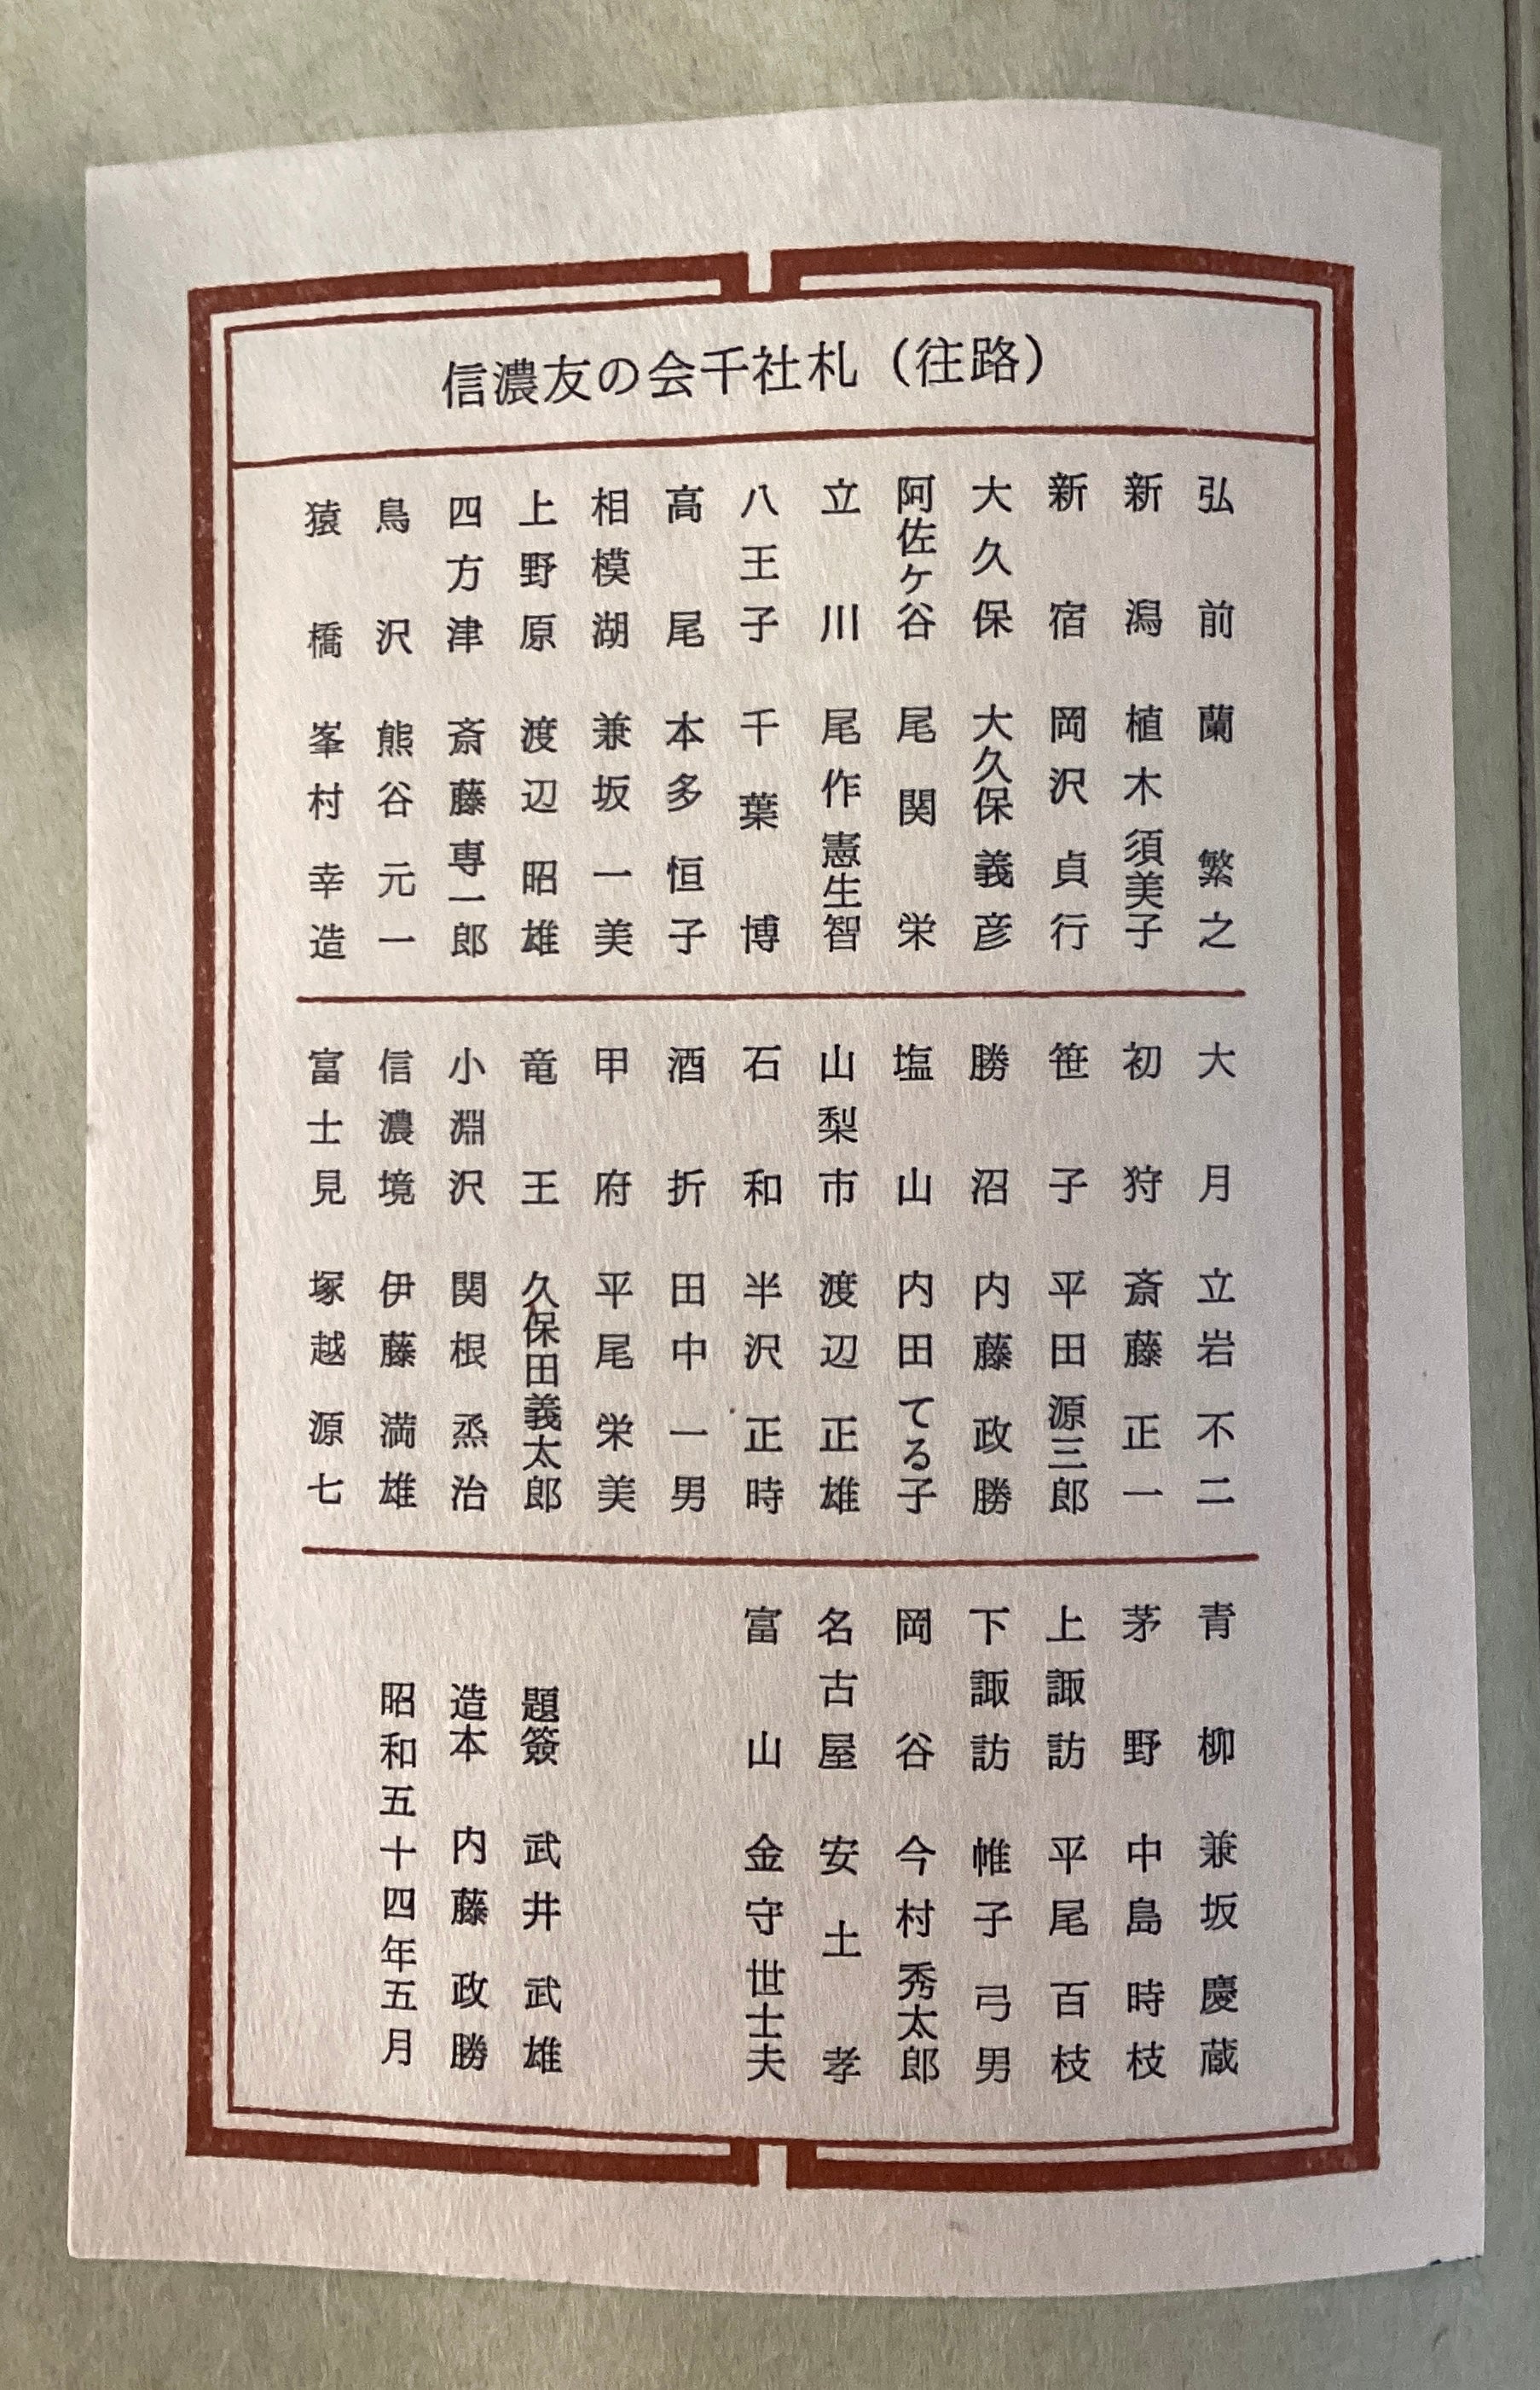 信濃友の会千社札（往路）
弘前 蘭繁之
新潟 植木須美子
新宿 岡沢貞行
大久保 大久保義彦
阿佐ケ谷 尾関栄
立川 尾作憲生智
八王子 千葉博
高尾 本多恒子
相模湖 兼坂一美
上野原 渡辺昭雄
四方津 斎藤専一郎
鳥沢 熊谷元一
猿橋 峯村幸造
大月 立岩不二
初狩 斎藤正一
笹子 平田源三郎
勝沼 内藤政勝
塩山 内田てる子
山梨市 渡辺正雄
石和 半沢正時
酒折 田中一男
甲府 平尾栄美
竜王 久保田義太郎
小淵沢 関根烝治
信濃境 伊藤満雄
富士見 塚越源七
青柳 兼坂慶蔵
茅野 中島時枝
上諏訪 平尾百枝
下諏訪 帷子弓男
岡谷 今村秀太郎
名古屋 安土孝
富山 金守世士夫
題簽 武井武雄
造本 内藤政勝
昭和五十四年五月